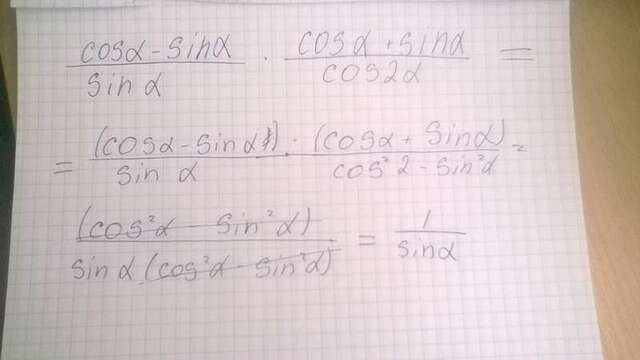 (cosα - sinα)/(sin α) · (cosα + sinα)/(cos2α) =
= ((cosα - sin α))/(sin α) · ((cosα + sinα))/(cos² 2 - sin²α) =
((cos²α - sin²α))/(sin α (cos²α - sin²α)) = 1/(sinα)